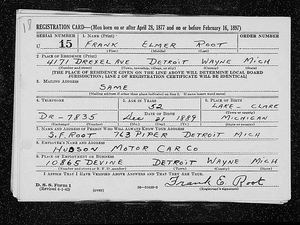 REGISTRATION CARD—(Men born on or after April 28, 1877 and on or before February 16, 1897)
SERIAL NUMBER 1. NAME (Print) ORDER NUMBER
U 15 FRANK ELMER ROOT
2. PLACE OF RESIDENCE (Print)
4171 DREXEL AVE DETROIT WAYNE MICH
[THE PLACE OF RESIDENCE GIVEN ON THE LINE ABOVE WILL DETERMINE LOCAL BOARD
JURISDICTION; LINE 2 OF REGISTRATION CERTIFICATE WILL BE IDENTICAL]
3. MAILING ADDRESS
SAME
[Mailing address if other than place indicated on line 2. If same insert word same]
4. TELEPHONE 5. AGE IN YEARS 6. PLACE OF BIRTH
52 LAKE - CLARE
DATE OF BIRTH
DR-7835 Dec 21 1889 MICHIGAN
7. NAME AND ADDRESS OF PERSON WHO WILL ALWAYS KNOW YOUR ADDRESS
S.F. ROOT 763 PIPER DETROIT MICH
8. EMPLOYER'S NAME AND ADDRESS
HUDSON MOTOR CAR CO
9. PLACE OF EMPLOYMENT OR BUSINESS
10865 DEVINE DETROIT WAYNE MICH
I AFFIRM THAT I HAVE VERIFIED ABOVE ANSWERS AND THAT THEY ARE TRUE.
D. S. S. Form 1
(Revised 4-1-42) (over) Frank E. Root
(Registrant's signature)